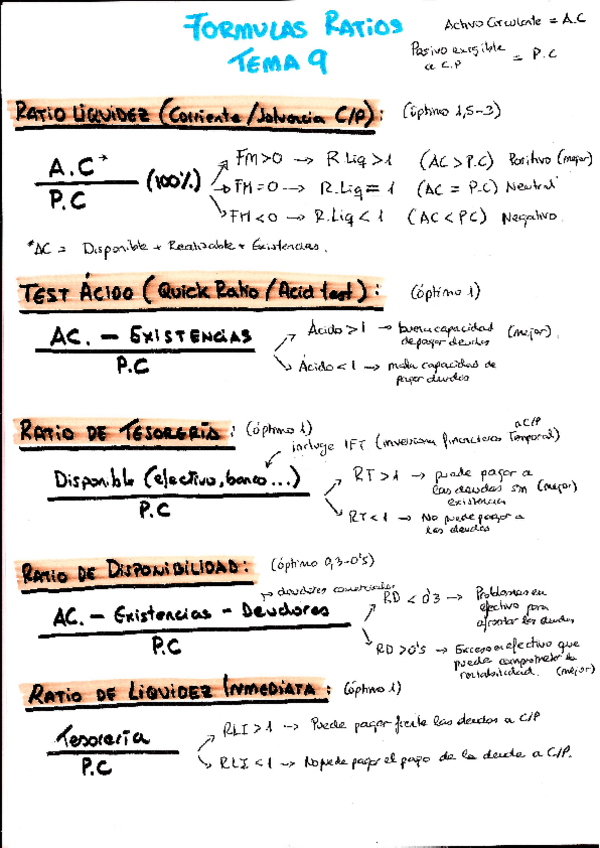 FORMULAS RATIOS
TEMA 9
Activo Circulante = A.C
Pasivo exigible a C.P = P.C
RATIO LIQUIDEZ (Corriente/Solvencia C/P): (óptimo 1,5-3)
A.C* / P.C (100%)
FM>0 → R.Liq>1 (AC>P.C) Positivo (mejor)
FM=0 → R.Liq=1 (AC=P.C) Neutral
FM<0 → R.Liq<1 (AC<PC) Negativo.
*AC = Disponible + Realizable + Existencias.
TEST ÁCIDO (Quick Ratio/Acid test): (óptimo 1)
AC. - EXISTENCIAS / P.C
Ácido>1 → buena capacidad de pagar deudas (mejor).
Ácido<1 → mala capacidad de pagar deudas
RATIO DE TESORERÍA: (óptimo 1)
incluye IFT (inversiones financieras Temporal) a C/P
Disponible (efectivo, banco...) / P.C
RT>1 → puede pagar a las deudas sin existencias (mejor)
RT<1 → No puede pagar a las deudas
RATIO DE DISPONIBILIDAD: (óptimo 0,3-0'5)
→ deudores comerciales
AC. - Existencias - Deudores / P.C
RD<0'3 → Problemas en efectivo para afrontar las deudas
RD>0'5 → Exceso en efectivo que puede comprometer la rentabilidad. (mejor)
RATIO DE LIQUIDEZ INMEDIATA: (óptimo 1)
Tesorería / P.C
RLI>1 → Puede pagar frente las deudas a C/P
RLI<1 → No puede pagar el pago de la deuda a C/P.